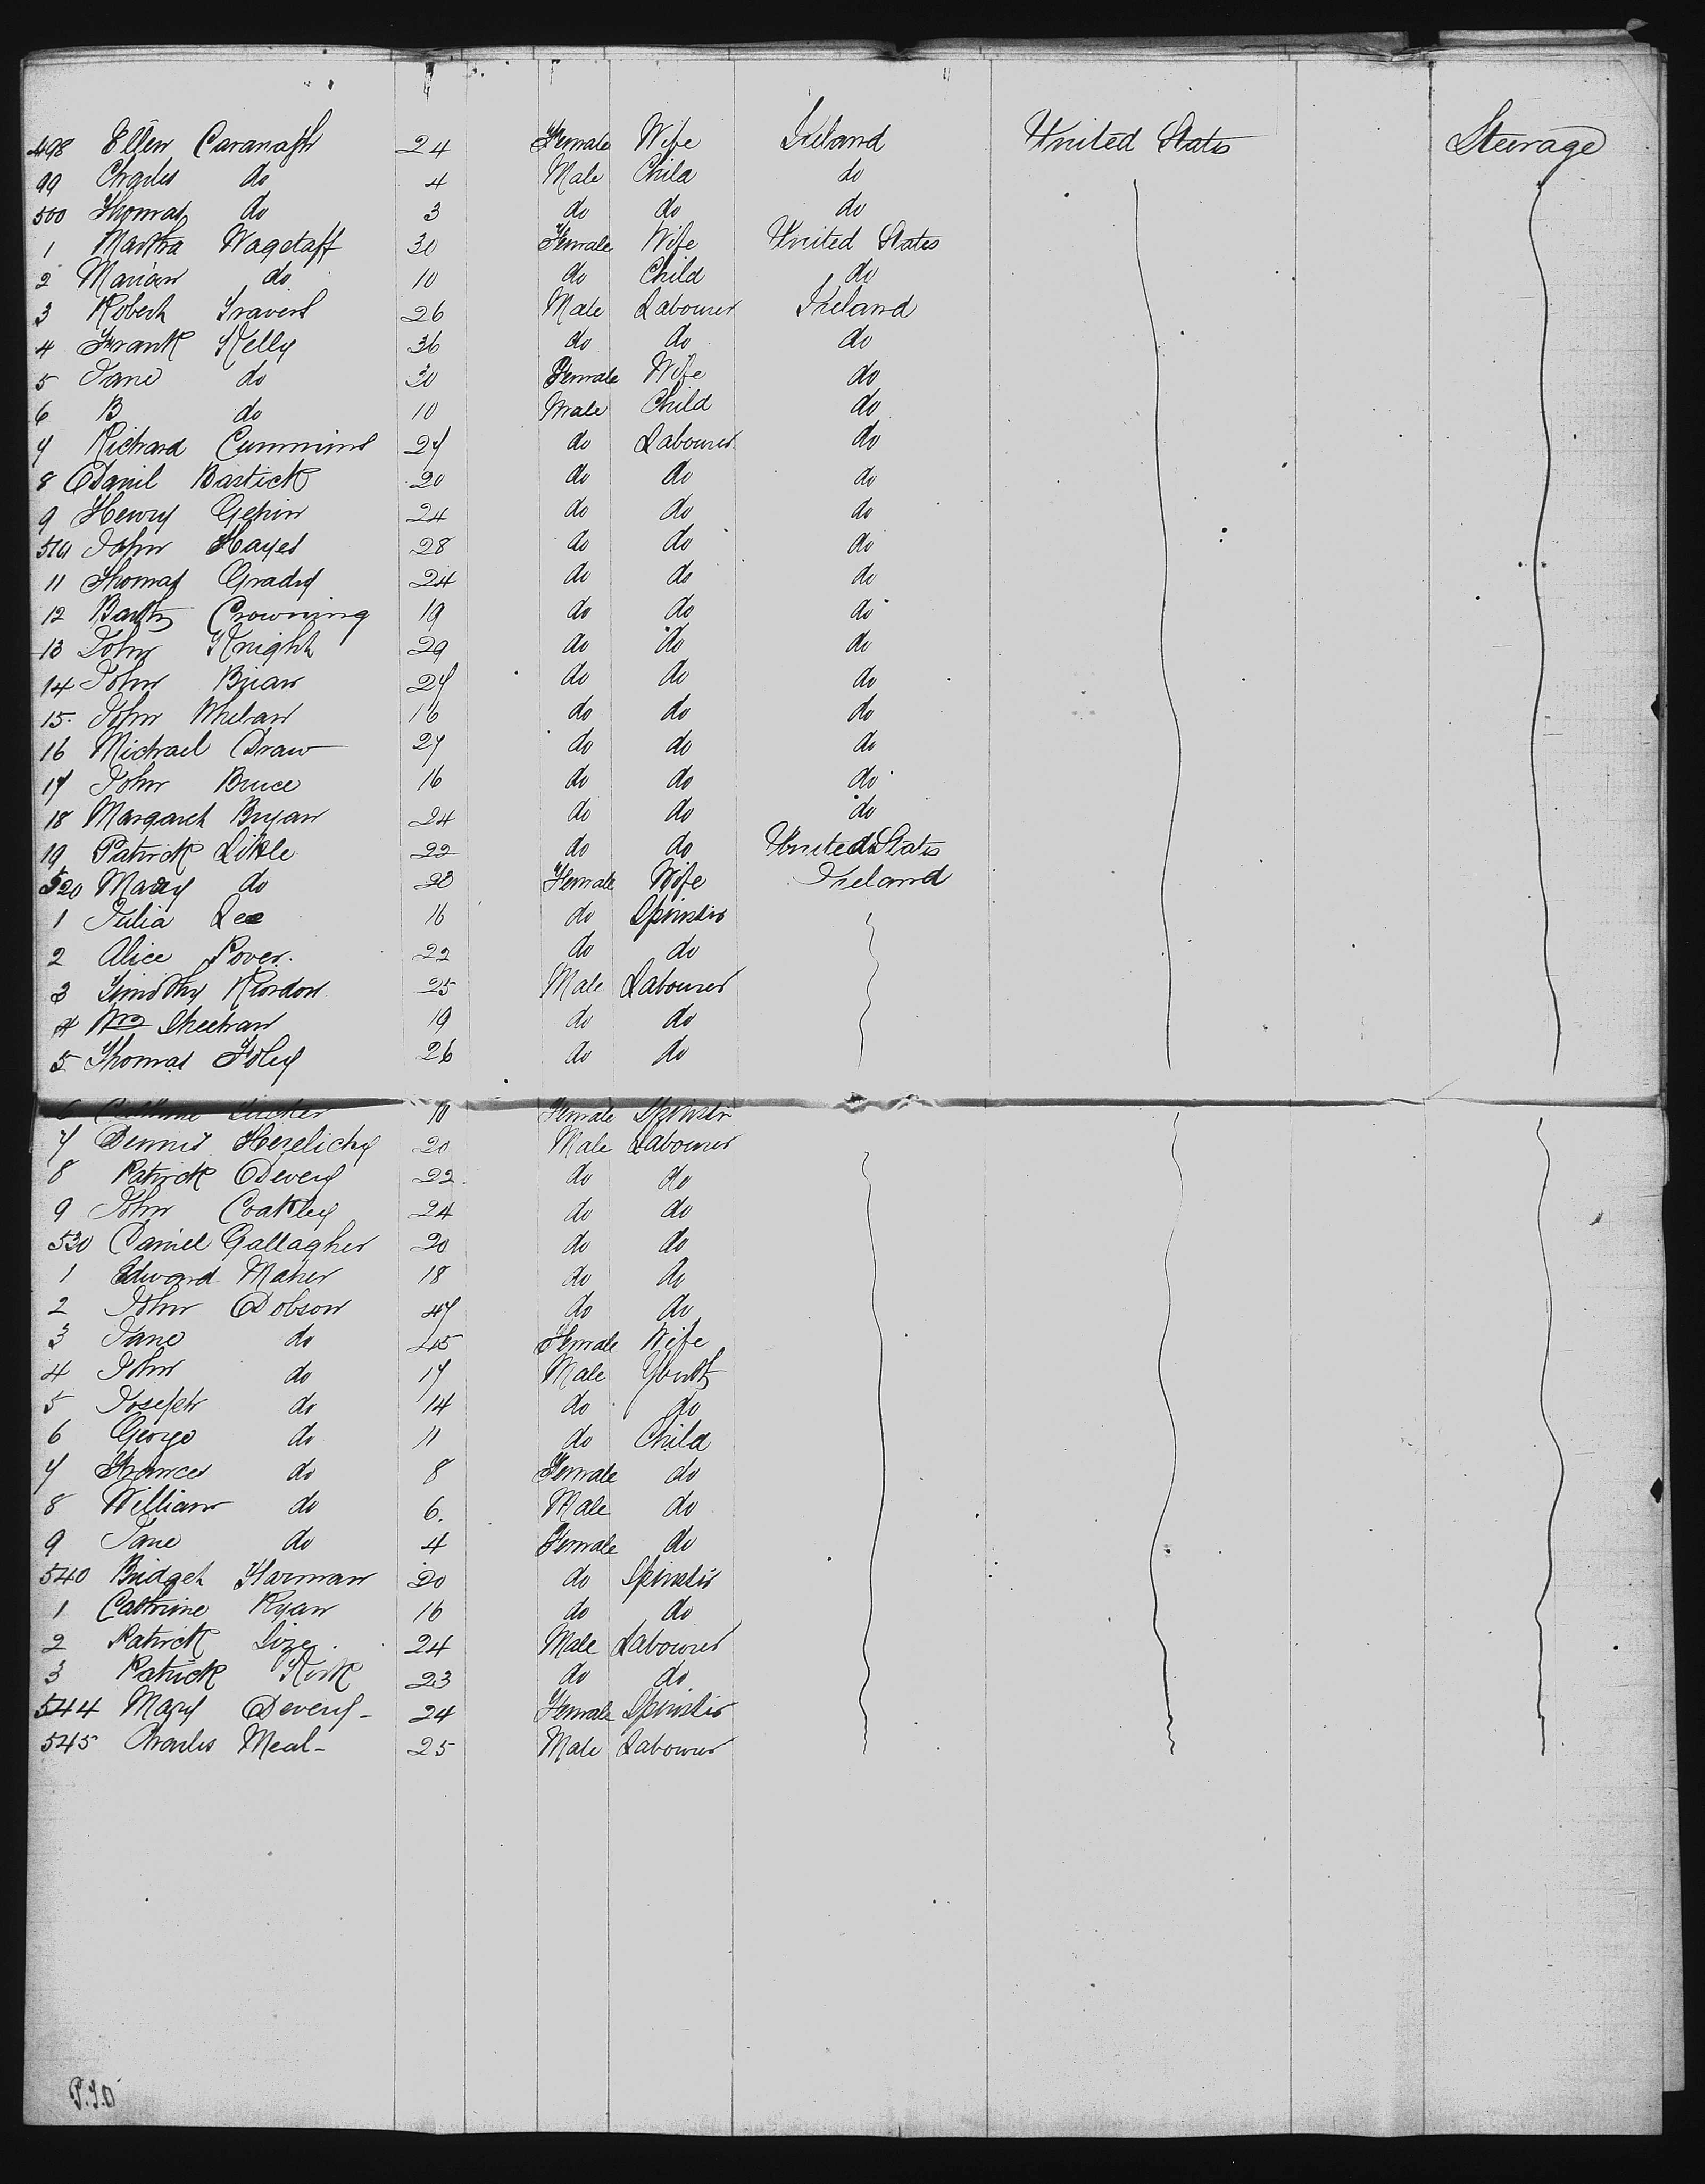 498 Ellen Cavanagh 24 Female Wife Ireland United States Steerage
99 Charles do 4 Male Child do
500 Thomas do 3 do do do
1 Martha Wagstaff 30 Female Wife United States
2 Marian do 10 do Child do
3 Robert Travers 26 Male Labourer Ireland
4 Frank Kelly 36 do do do
5 Jane do 30 Female Wife do
6 B do 10 Male Child do
7 Richard Cummins 27 do Labourer do
8 Daniel Bastick 20 do do do
9 Henry 24 do do do
510 John Hayes 28 do do do
11 Thomas Grady 24 do do do
12 Crowning 19 do do do
13 John Knight 29 do do do
14 John Brian 27 do do do
15 John Whelan 16 do do do
16 Michael Draw 27 do do do
17 John Bruce 16 do do do
18 Margaret Bryan 24 do do do
19 Patrick Little 22 do do United States
520 Mary do 20 Female Wife Ireland
1 Julia Lee 16 do Spinster
2 Alice Power 22 do do
3 Timothy Riordon 25 Male Labourer
4 Wm Sheehan 19 do do
5 Thomas Foley 26 do do
6 Tucker Female Spinster
7 Dennis 20 Male Labourer
8 Patrick Devery 22 do do
9 John Coakley 24 do do
530 Daniel Gallagher 20 do do
1 Edward Maher 18 do do
2 John Dobson 47 do do
3 Jane do 45 Female Wife
4 John do 17 Male Youth
5 Joseph do 14 do do
6 George do 11 do Child
7 Frances do 8 Female do
8 William do 6 Male do
9 Jane do 4 Female do
540 Bridget Harman 20 do Spinster
1 Cathrine Ryan 16 do do
2 Patrick 24 Male Labourer
3 Patrick Kirk 23 do do
544 Mary Devery 24 Female Spinster
545 Charles Meal 25 Male Labourer
P.T.O